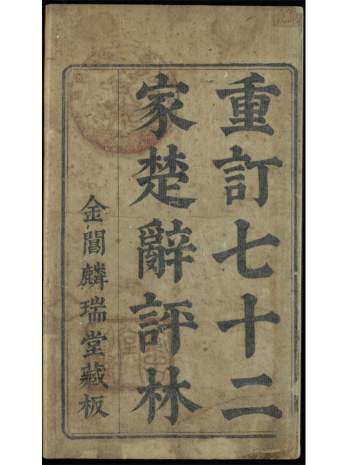 重訂七十二
家楚辭評林
金閶麟瑞堂藏板